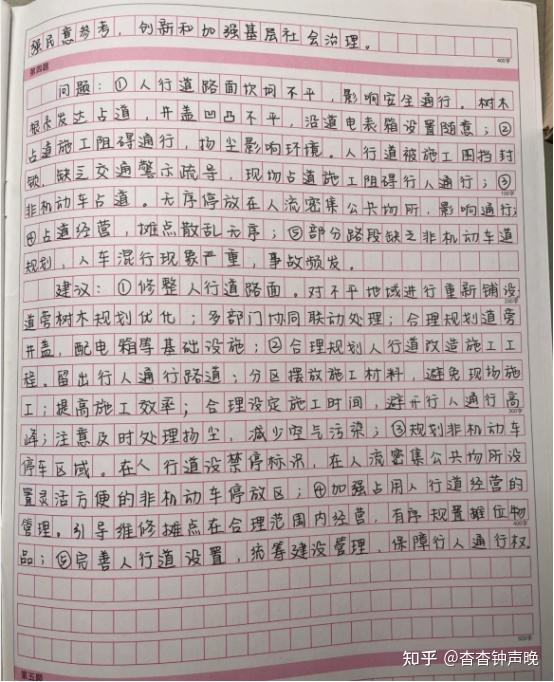 强民意参考，创新和加强基层社会治理。
400字
第四题
问题：①人行道路面坎坷不平，影响安全通行。树木
根系发达占道，井盖凹凸不平，沿道电表箱设置随意；②
占道施工阻碍通行，扬尘影响环境。人行道被施工围挡封
锁，缺乏交通警示疏导，现场占道施工阻碍行人通行；③
100字
非机动车占道。无序停放在人流密集公共场所，影响通行；
④占道经营，摊点散乱无序；⑤部分路段缺乏非机动车道
规划，人车混行现象严重，事故频发。
建议：①修整人行道路面。对不平地域进行重新铺设
200字
道旁树木规划优化；多部门协同联动处理；合理规划道旁
井盖，配电箱等基础设施；②合理规划人行道改造施工工
程。留出行人通行路道；分区摆放施工材料，避免现场施
工；提高施工效率；合理设定施工时间，避开行人通行高
300字
峰；注意及时处理扬尘，减少空气污染；③规划非机动车
停车区域。在人行道设禁停标识，在人流密集公共场所设
置灵活方便的非机动车停放区；④加强占用人行道经营的
管理。引导维修摊点在合理范围内经营，有序规置摊位物
400字
品；⑤完善人行道设置，统筹建设管理，保障行人通行权
500字
第五题
知乎 @杳杳钟声晚